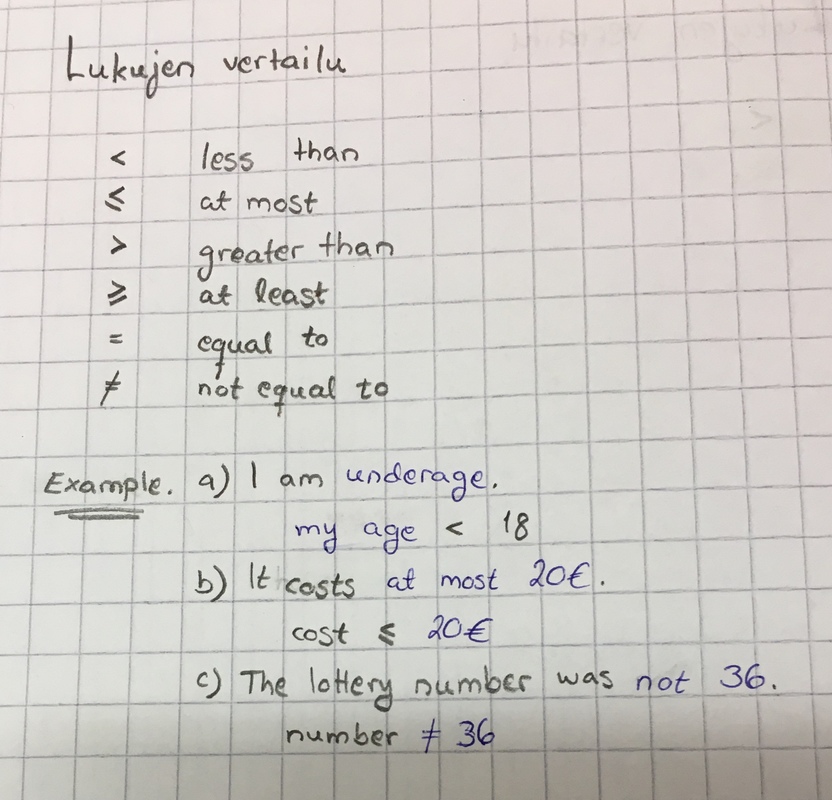 Lukujen vertailu
< less than
≤ at most
> greater than
≥ at least
= equal to
≠ not equal to
Example. a) I am underage.
my age < 18
b) It costs at most 20€.
cost ≤ 20€
c) The lottery number was not 36.
number ≠ 36